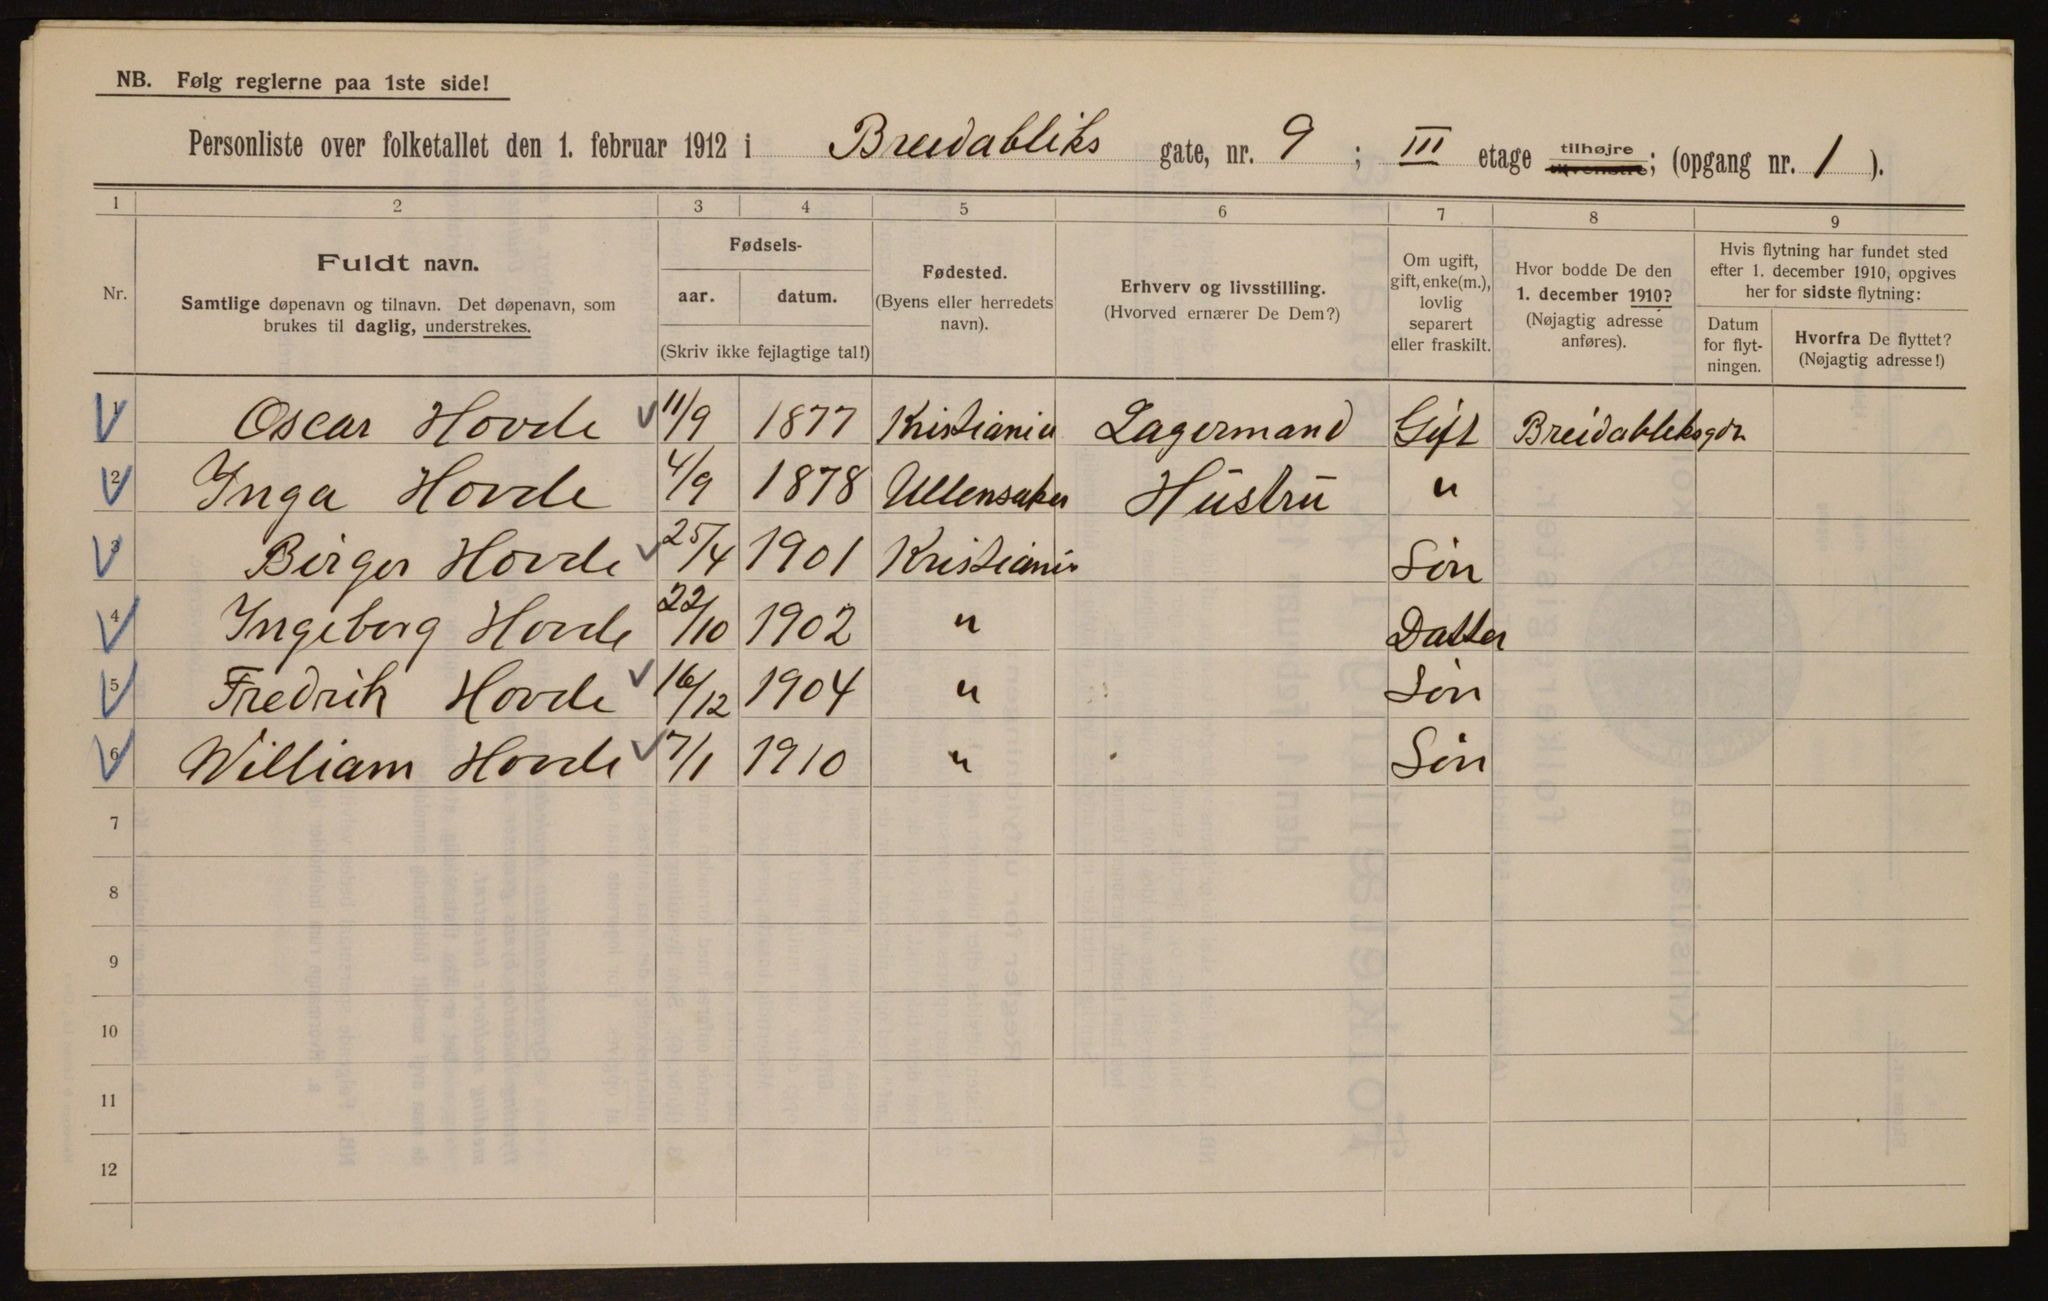 NB. Følg reglerne paa 1ste side!
Personliste over folketallet den 1. februar 1912 i Breidabliks gate, nr. 9; III etage tilhøjre tilvenstre; (opgang nr. 1).
1 2 3 4 5 6 7 8 9
Nr.
Fuldt navn.
Samtlige døpenavn og tilnavn. Det døpenavn, som
brukes til daglig, understrekes.
Fødsels-
aar. datum.
(Skriv ikke fejlagtige tal!)
Fødested.
(Byens eller herredets
navn).
Erhverv og livsstilling.
(Hvorved ernærer De Dem?)
Om ugift,
gift, enke(m.),
lovlig
separert
eller fraskilt.
Hvor bodde De den
1. december 1910?
(Nøjagtig adresse
anføres).
Hvis flytning har fundet sted
efter 1. december 1910, opgives
her for sidste flytning:
Datum
for flyt-
ningen.
Hvorfra De flyttet?
(Nøjagtig adresse!)
1 Oscar Hovde 11/9 1877 Kristiania Lagermand Gift Breidabliksgdn
2 Inga Hovde 4/9 1878 Ullensaker Hustru "
3 Birger Hovde 25/4 1901 Kristiania Søn
4 Ingeborg Hovde 22/10 1902 " Datter
5 Fredrik Hovde 16/12 1904 " Søn
6 William Hovde 7/1 1910 " Søn
7
8
9
10
11
12